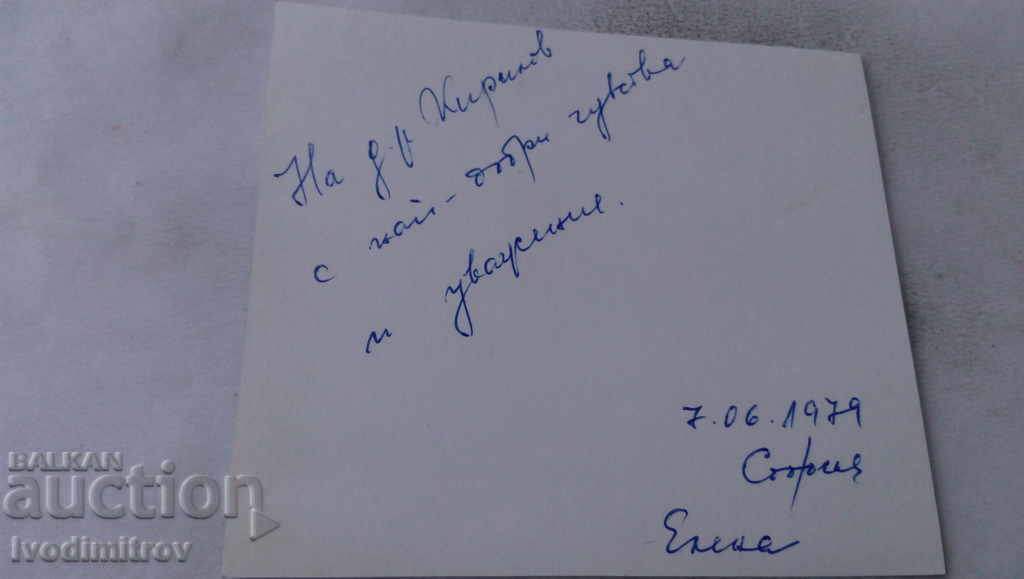 На д-р Киринов
с най-добри чувства
и уважение.
7.06.1979
София
Елена
BALKAN
auction
Ivodimitrov